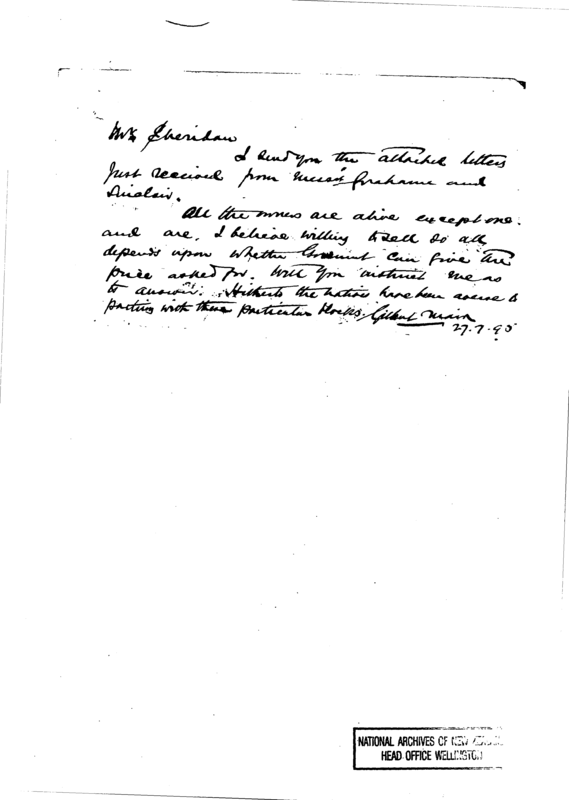 Mr Sheridan
I send you the attached letters
just received from Messrs Grahame and
Sinclair.
All the owners are alive except one.
and are, I believe willing to sell so all
depends upon whether Government can give the
price asked for. Will you instruct me as
to answer. Hitherto the natives have been averse to
parting with these particular blocks. Gilbert Mair
27.7.95
NATIONAL ARCHIVES OF NEW
HEAD OFFICE WELLINGTON